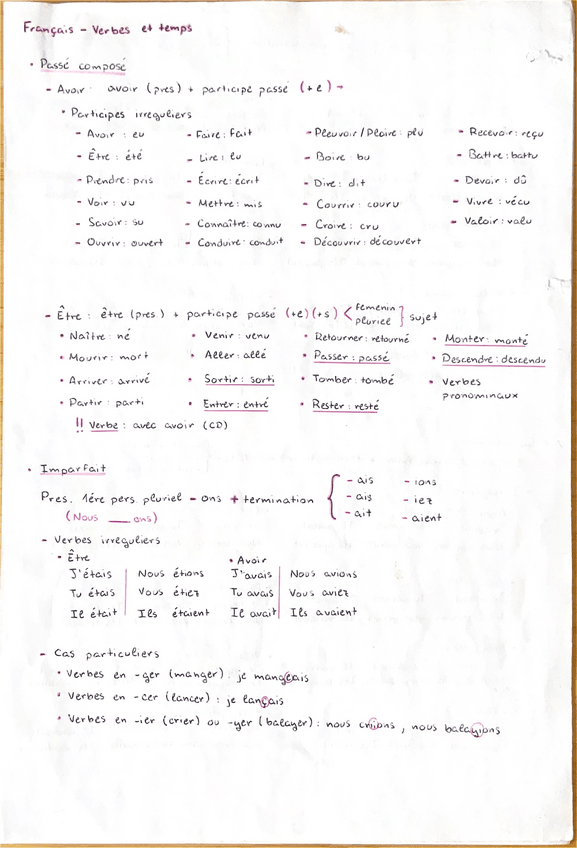 Français - Verbes et temps
• Passé composé
- Avoir: avoir (pres) + participe passé (+e) -
• Participes irreguliers
- Avoir: eu - Faire: fait - Pleuvoir / Plaire: plu - Recevoir: reçu
- Être: été - Lire: lu - Boire: bu - Battre: battu
- Prendre: pris - Écrire: écrit - Dire: dit - Devoir: dû
- Voir: vu - Mettre: mis - Courrir: couru - Vivre: vécu
- Savoir: su - Connaître: connu - Croire: cru - Valoir: valu
- Ouvrir: ouvert - Conduire: conduit - Découvrir: découvert
- Être: être (pres.) + participe passé (+e) (+s) < femenin pluriel } sujet
• Naître: né • Venir: venu • Retourner: retourné • Monter: monté
• Mourir: mort • Aller: allé • Passer: passé • Descendre: descendu
• Arriver: arrivé • Sortir: sorti • Tomber: tombé • Verbes pronominaux
• Partir: parti • Entrer: entré • Rester: resté
!! Verbe: avec avoir (CD)
• Imparfait
Pres. 1ére pers. pluriel - ons + termination { - ais - ions
- ais - iez
- ait - aient
(Nous ___ ons)
- Verbes irreguliers
• Être • Avoir
J'étais Nous étions J'avais Nous avions
Tu étais Vous étiez Tu avais Vous aviez
Il était Ils étaient Il avait Ils avaient
- Cas particuliers
• Verbes en -ger (manger): je mangeais
• Verbes en -cer (lancer): je lançais
• Verbes en -ier (crier) ou -yer (balayer): nous criions, nous balayions